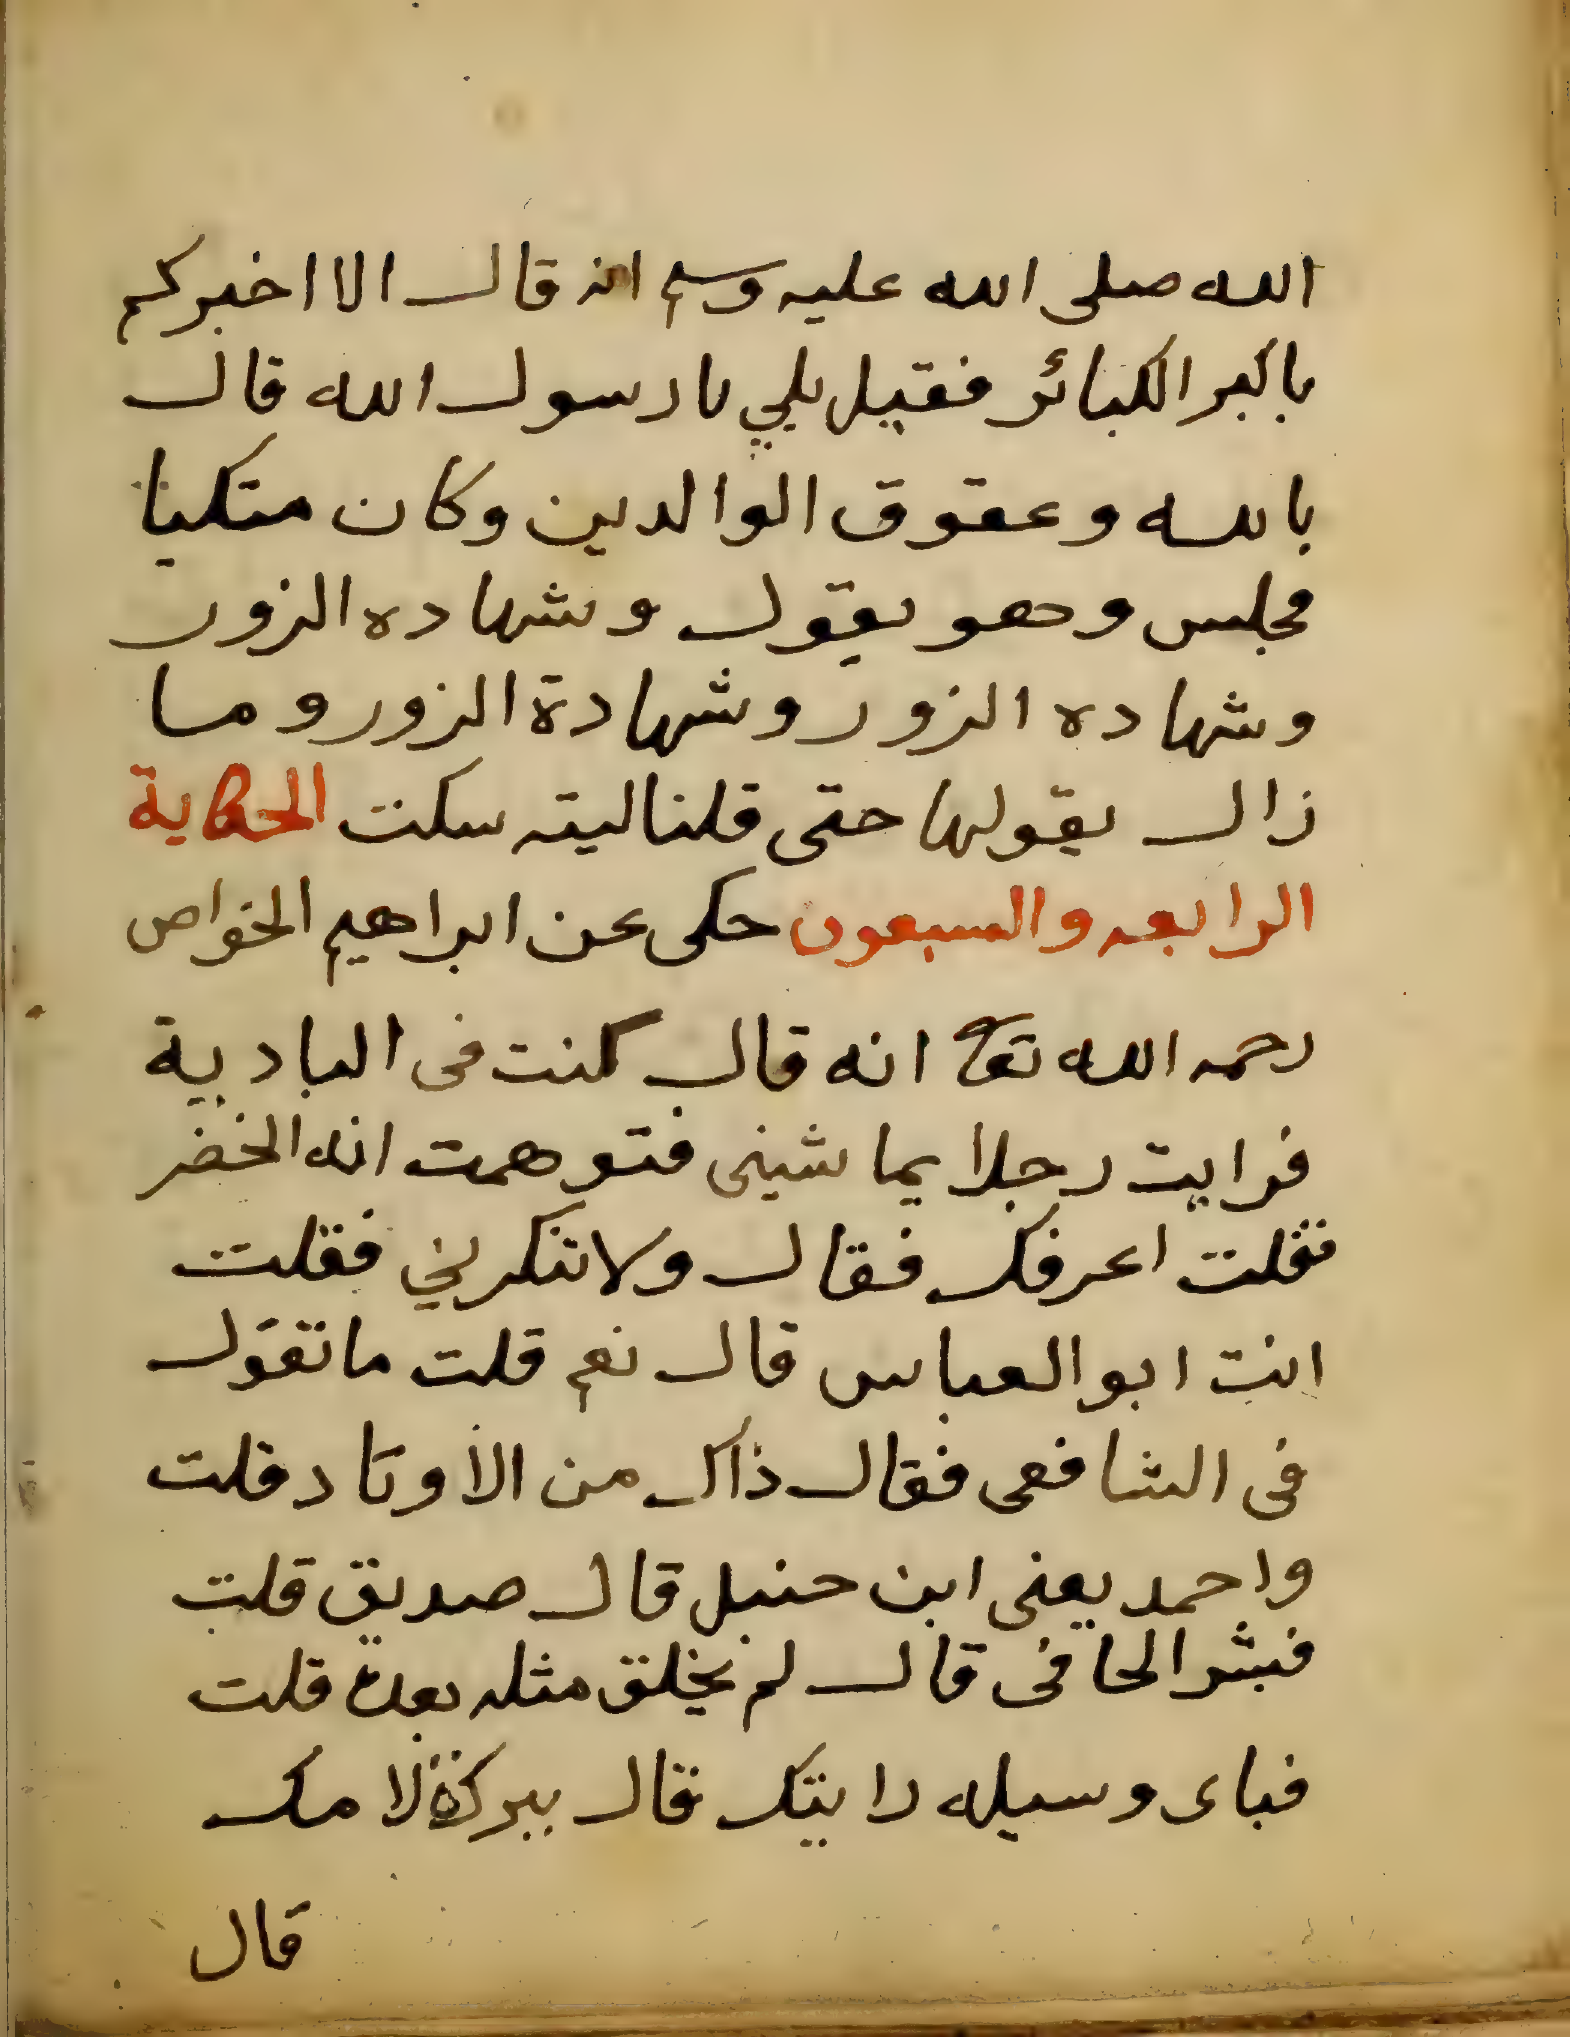 الله صلى الله عليه وسلم انه قال الا اخبركم
باكبر الكبائر فقيل بلي يا رسول الله قال
بالله وعقوق الوالدين وكان متكيا
فجلس وهو يقول وشهاده الزور
وشهاده الزور وشهادة الزور وما
زال يقولها حتى قلنا ليته سكت الحكاية
الرابعه والسبعون حكى عن ابراهيم الخواص
رحمه الله تعا انه قال كنت في البادية
فرايت رجلا يماشيني فتوهمت انه الخضر
فقلت اعرفك فقال ولا تنكرني فقلت
انت ابو العباس قال نعم قلت ما تقول
فى الشافعى فقال ذاك من الأوتاد قلت
واحمد يعنى ابن حنبل قال صديق قلت
فبشر الحافى قال لم يخلق مثله بعده قلت
فباى وسيله رايتك قال ببركة لامك
قال